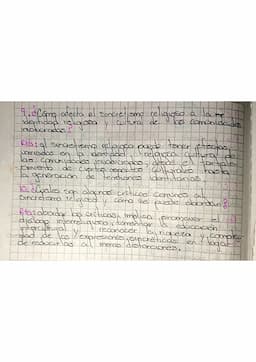 9. ¿Cómo afecta el sincretismo religioso a la
identidad religiosa y cultura de las comunidades
involucradas?
Rta: el sincretismo religioso puede tener efectos
variados en la identidad religiosa cultural de
las comunidades involucradas, desde el fortale
cimiento de ciertos aspectos culturales hasta
la generación de tensiones identitarias.
10. ¿Cuáles son algunas críticas comunes al
sincretismo religioso y cómo se puede abordar?
Rta: abordar las críticas implica promover el
diálogo interreligioso, fomentar la educación
intercultural y reconocer la riqueza y comple
dad de las expresiones sincréticas en lugar
de reducirlas a meras distorsiones.